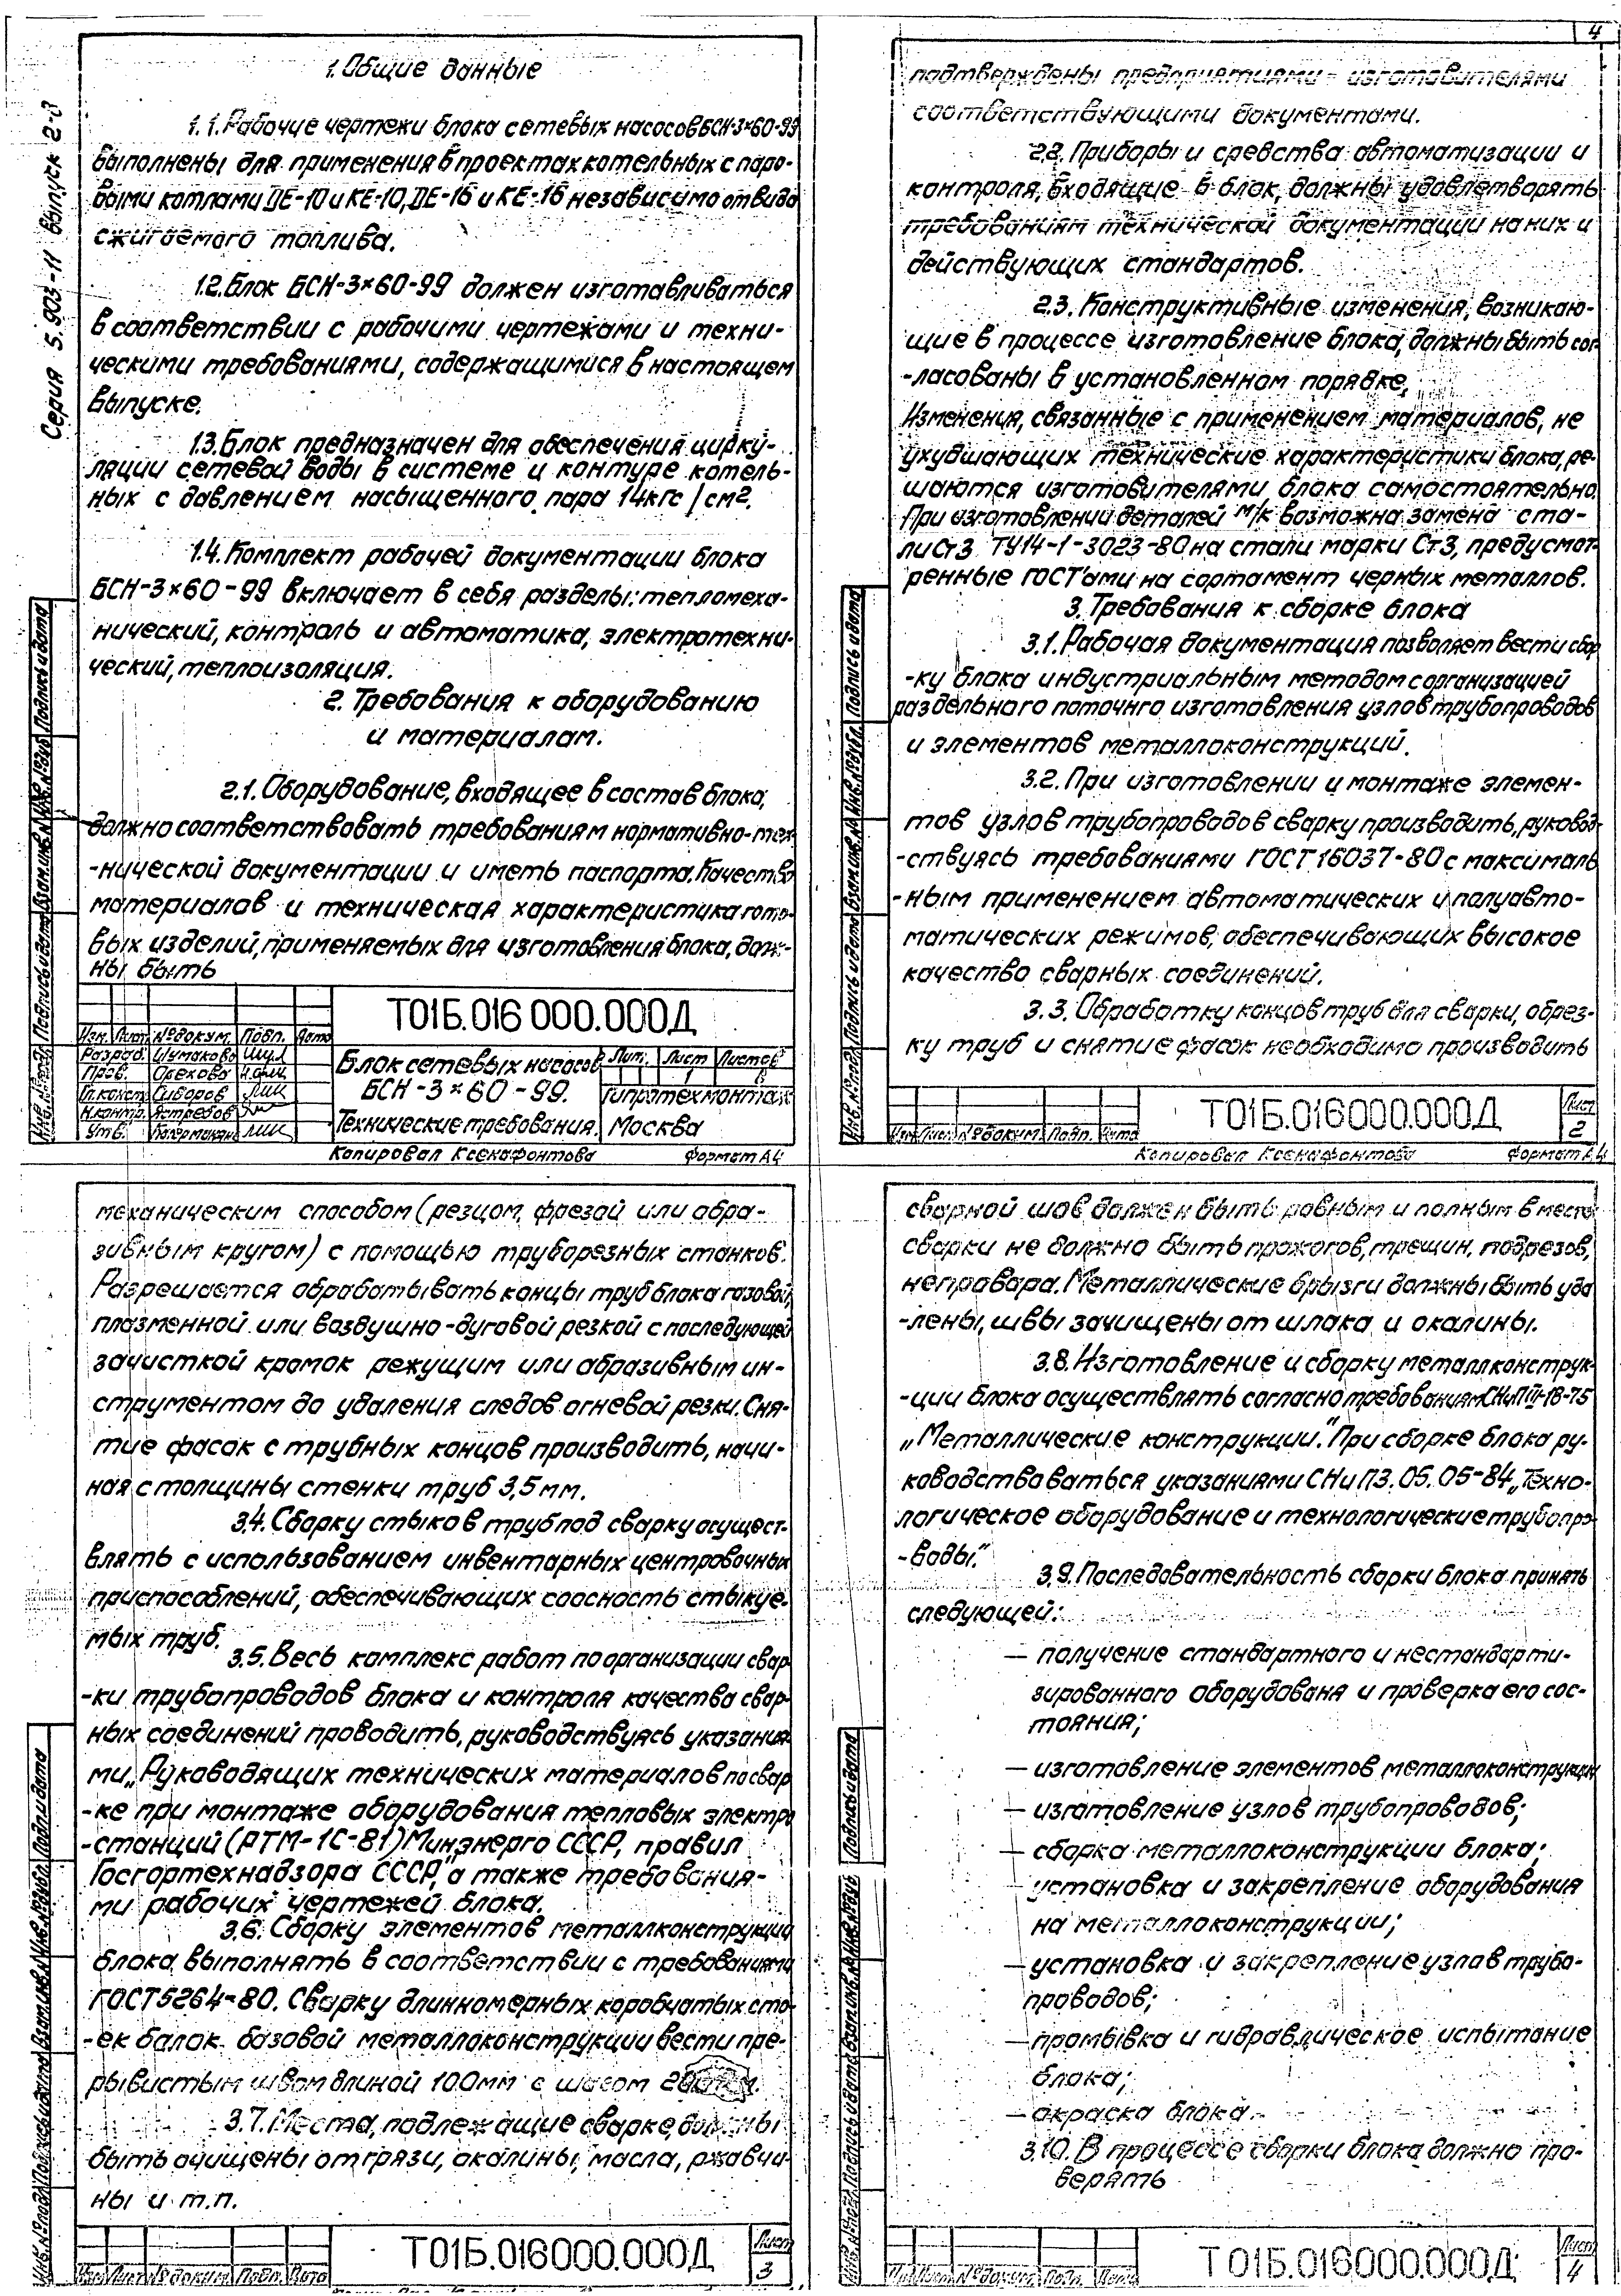 Серия 5.903-11 Выпуск 2-3
1. Общие данные
1.1. Рабочие чертежи блока сетевых насосов БСН-3×60-99
выполнены для применения в проектах котельных с паро-
выми котлами ДЕ-10 и КЕ-10, ДЕ-16 и КЕ-16 независимо от вида
сжигаемого топлива.
1.2. Блок БСН-3×60-99 должен изготавливаться
в соответствии с рабочими чертежами и техни-
ческими требованиями, содержащимися в настоящем
выпуске.
1.3. Блок предназначен для обеспечения цирку-
ляции сетевой воды в системе и контуре котель-
ных с давлением насыщенного пара 14кгс/см².
1.4. Комплект рабочей документации блока
БСН-3×60-99 включает в себя разделы: тепломеха-
нический, контроль и автоматика, электротехни-
ческий, теплоизоляция.
2. Требования к оборудованию
и материалам.
2.1. Оборудование, входящее в состав блока,
должно соответствовать требованиям нормативно-тех-
-нической документации и иметь паспорта. Качество
материалов и техническая характеристика гото-
вых изделий, применяемых для изготовления блока, долж-
ны быть
Т01Б.016 000.000Д
Изм. Лист №докум. Подп. Дата
Разраб. Шумакова
Пров. Орехова
Гл.конст. Сиворов
Н.контр. Ястребов
Утв.
Блок сетевых насосов
БСН-3×60-99.
Технические требования.
Лит. Лист Листов
1 8
Гипротехмонтаж
Москва
Копировал Ксенафонтова Формат А4
Инв.№подл. Подпись и дата Взам.инв.№ Инв.№дубл. Подпись и дата
4
подтверждены предприятиями-изготовителями
соответствующими документами.
2.2. Приборы и средства автоматизации и
контроля, входящие в блок, должны удовлетворять
требованиям технической документации на них и
действующих стандартов.
2.3. Конструктивные изменения, возникаю-
щие в процессе изготовление блока, должны быть сог-
-ласованы в установленном порядке.
Изменения, связанные с применением материалов, не
ухудшающих технические характеристики блока, ре-
шаются изготовителями блока самостоятельно.
При изготовлении деталей м/к возможна замена ста-
ли Ст3 ТУ14-1-3023-80 на стали марки Ст3, предусмот-
ренные ГОСТ'ами на сортамент черных металлов.
3. Требования к сборке блока
3.1. Рабочая документация позволяет вести сбор
-ку блока индустриальным методом с организацией
раздельного поточнго изготовления узлов трубопроводов
и элементов металлоконструкций.
3.2. При изготовлении и монтаже элемен-
тов узлов трубопроводов сварку производить, руковод-
-ствуясь требованиями ГОСТ 16037-80 с максималь
-ным применением автоматических и полуавто-
матических режимов, обеспечивающих высокое
качество сварных соединений.
3.3. Обработку концов труб для сварки, обрез-
ку труб и снятие фасок необходимо производить
Т01Б.016000.000Д
Лист
2
Изм. Лист №докум. Подп. Дата
Копировал Ксенафонтова Формат А4
Инв.№подл. Подпись и дата Взам.инв.№ Инв.№дубл. Подпись и дата
механическим способом (резцом, фрезой или абра-
зивным кругом) с помощью труборезных станков.
Разрешается обрабатывать концы труб блока газовой,
плазменной или воздушно-дуговой резкой с последующей
зачисткой кромок режущим или абразивным ин-
струментом до удаления следов огневой резки. Сня-
тие фасок с трубных концов производить, начи-
ная с толщины стенки труб 3,5 мм.
3.4. Сборку стыков труб под сварку осущест-
влять с использованием инвентарных центровочных
приспособлений, обеспечивающих соосность стыкуе-
мых труб.
3.5. Весь комплекс работ по организации свар
-ки трубопроводов блока и контроля качества свар-
ных соединений проводить, руководствуясь указания
ми „Руководящих технических материалов по свар
-ке при монтаже оборудования тепловых электро
-станций (РТМ-1С-81) Минэнерго СССР, правил
Госгортехнадзора СССР," а также требования-
ми рабочих чертежей блока.
3.6. Сборку элементов металлконструкции
блока выполнять в соответствии с требованиями
ГОСТ 5264-80. Сварку длинномерных коробчатых сто-
-ек балок базовой металлоконструкции вести пре-
рывистым швом длиной 100мм с шагом
3.7. Места, подлежащие сварке, должны
быть очищены от грязи, окалины, масла, ржавчи-
ны и т.п.
Т01Б.016000.000Д
Лист
3
Изм Лист №докум. Подп. Дата
Инв.№подл. Подпись и дата Взам.инв.№ Инв.№дубл. Подп. и дата
сварной шов должен быть ровным и полным в месте
сварки не должно быть прожогов, трещин, подрезов,
непровара. Металлические брызги должны быть уда
-лены, швы зачищены от шлака и окалины.
3.8. Изготовление и сборку металлконструк-
-ции блока осуществлять согласно требованиям СНиП III-18-75
„Металлические конструкции." При сборке блока ру-
ководствоваться указаниями СНиП 3.05.05-84 „Техно-
логическое оборудование и технологические трубопро-
-воды."
3.9. Последовательность сборки блока принять
следующей:
— получение стандартного и нестандарти-
зированного оборудованя и проверка его сос-
тояния;
— изготовление элементов металлоконструкции
— изготовление узлов трубопроводов;
— сборка металлоконструкции блока;
— установка и закрепление оборудования
на металлоконструкции;
— установка и закрепление узлов трубо-
проводов;
— промывка и гидравлическое испытание
блока;
— окраска блока.
3.10. В процессе сборки блока должно про-
верять
Т01Б.016000.000Д
Лист
4
Лист №докум. Подп. Дата
Инв.№подл. Подпись и дата Взам.инв.№ Инв.№дубл. Подпись и дата